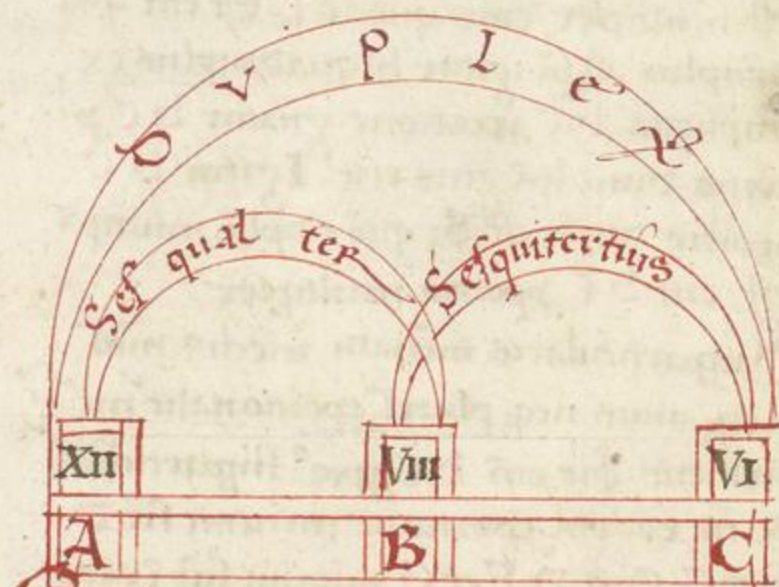 DVPLex
Sesqualter
Sesquitertius
XII VIII VI
A B C